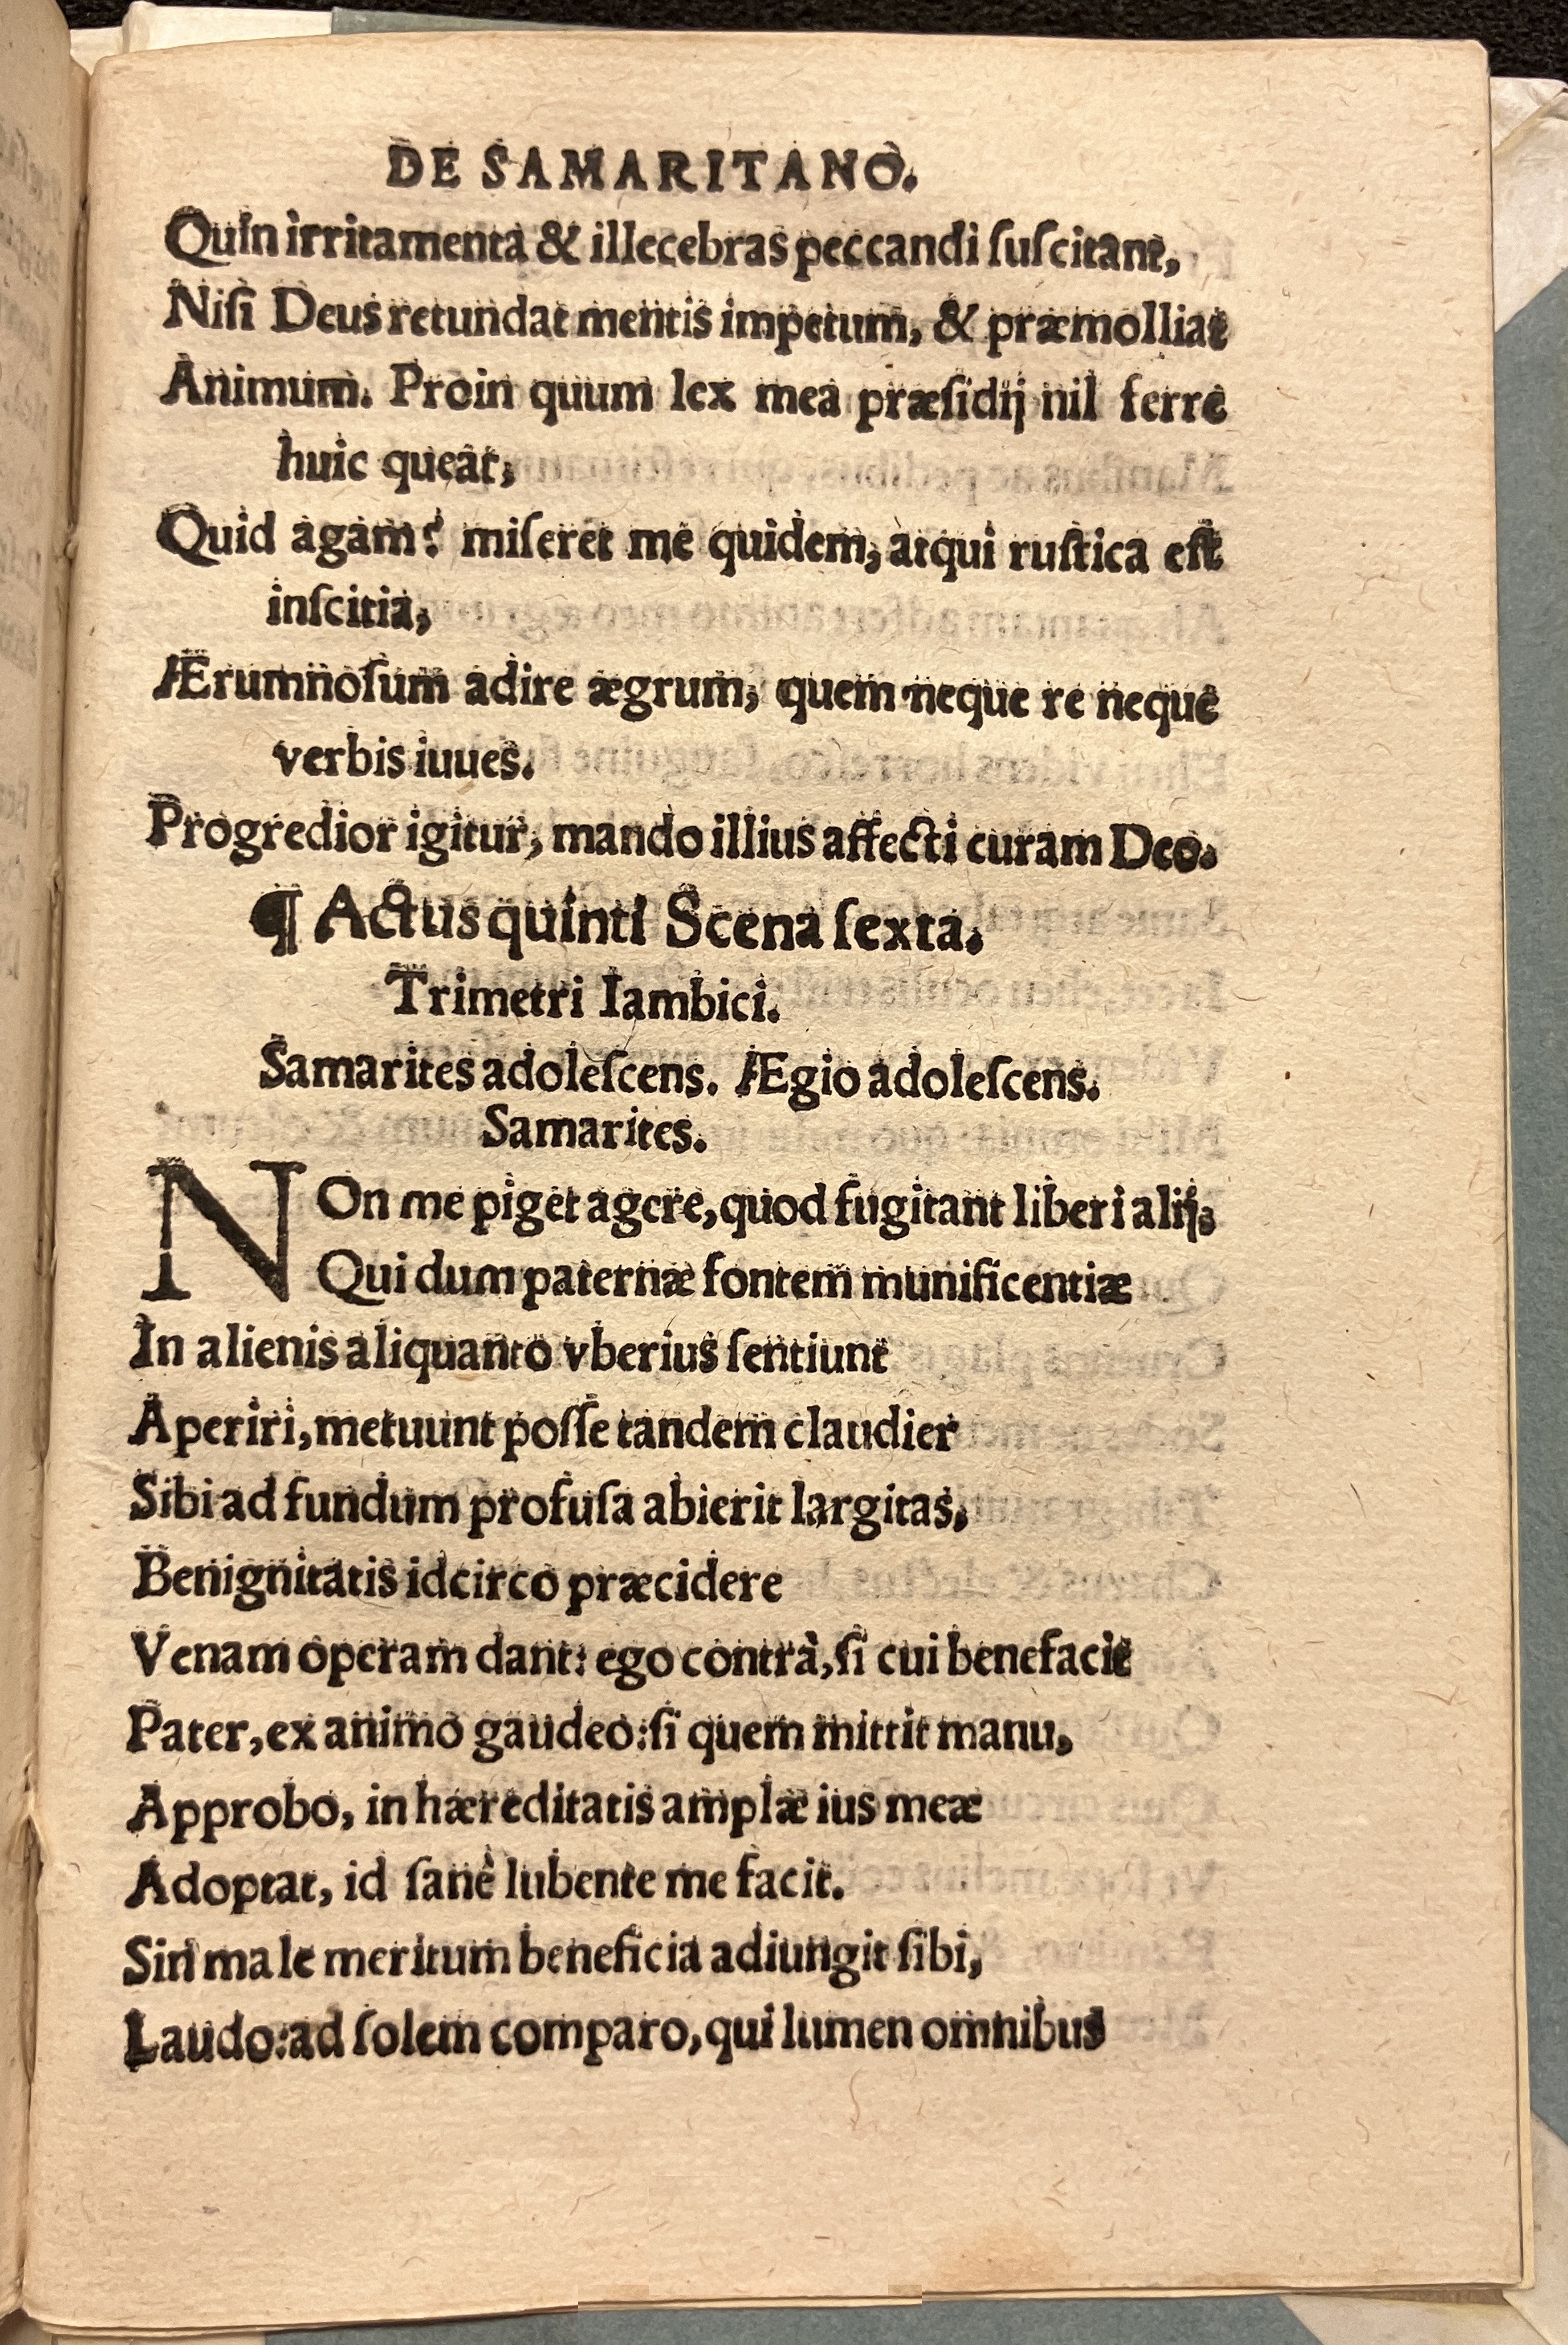 DE SAMARITANO.
Quin irritamenta & illecebras peccandi ſuſcitant,
Niſi Deus retundat mentis impetum, & præmolliat
Animum. Proin quum lex mea præſidij nil ferre
huic queat,
Quid agam? miſeret me quidem, atqui ruſtica eſt
inſcitia,
Ærumnoſum adire ægrum, quem neque re neque
verbis iuues.
Progredior igitur, mando illius affecti curam Deo.
¶ Actus quinti Scena ſexta.
Trimetri Iambici.
Samarites adoleſcens. Ægio adoleſcens.
Samarites.
NOn me piget agere, quod fugitant liberi alij,
Qui dum paternæ fontem munificentiæ
In alienis aliquanto vberius ſentiunt
Aperiri, metuunt poſſe tandem claudier
Sibi ad fundum profuſa abierit largitas,
Benignitatis idcirco præcidere
Venam operam dant: ego contrà, ſi cui benefacit
Pater, ex animo gaudeo: ſi quem mittit manu,
Approbo, in hæreditatis amplæ ius meæ
Adoptat, id ſanè lubente me facit.
Sin male meritum beneficia adiungit ſibi,
Laudo: ad ſolem comparo, qui lumen omnibus